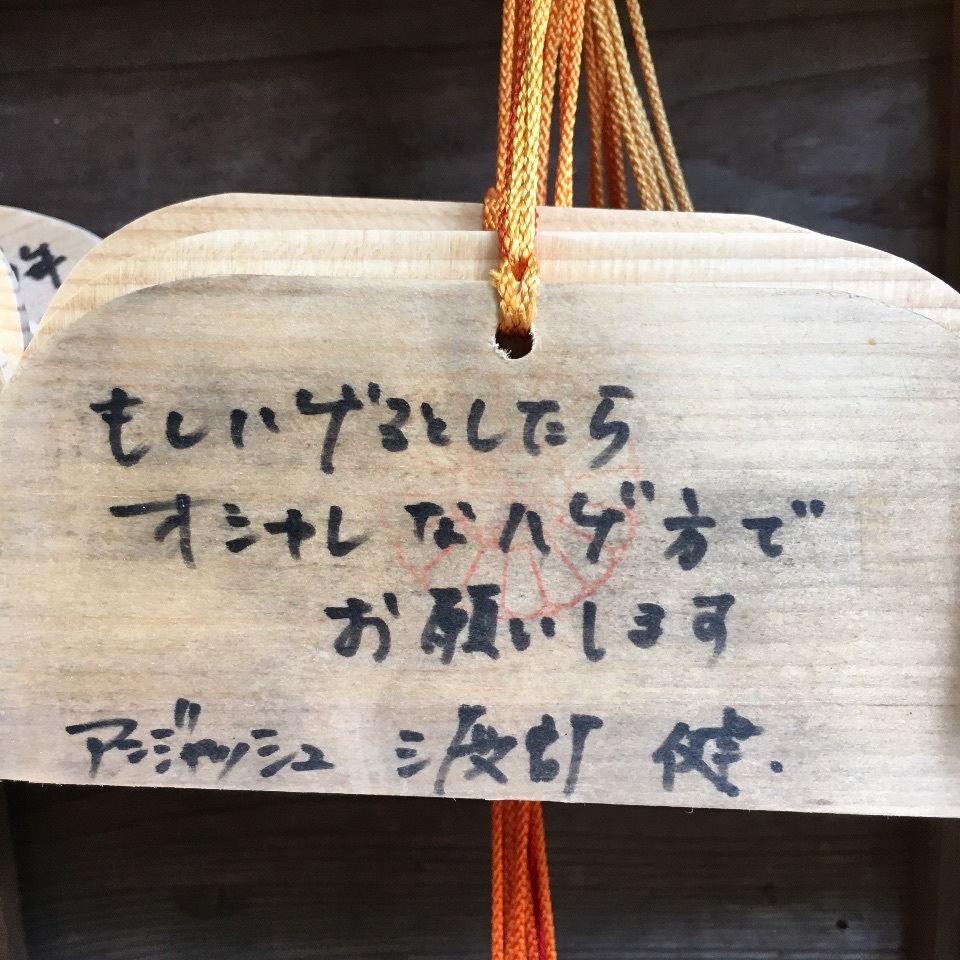 年
もしハゲるとしたら
オシャレなハゲ方で
お願いします
アンジャッシュ 渡部 健.